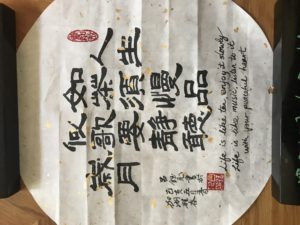 人生
如茶須慢品
歲月
似歌要靜聽
Life is like tea, enjoy it slowly
Life is like music, listen to it
with your peaceful heart